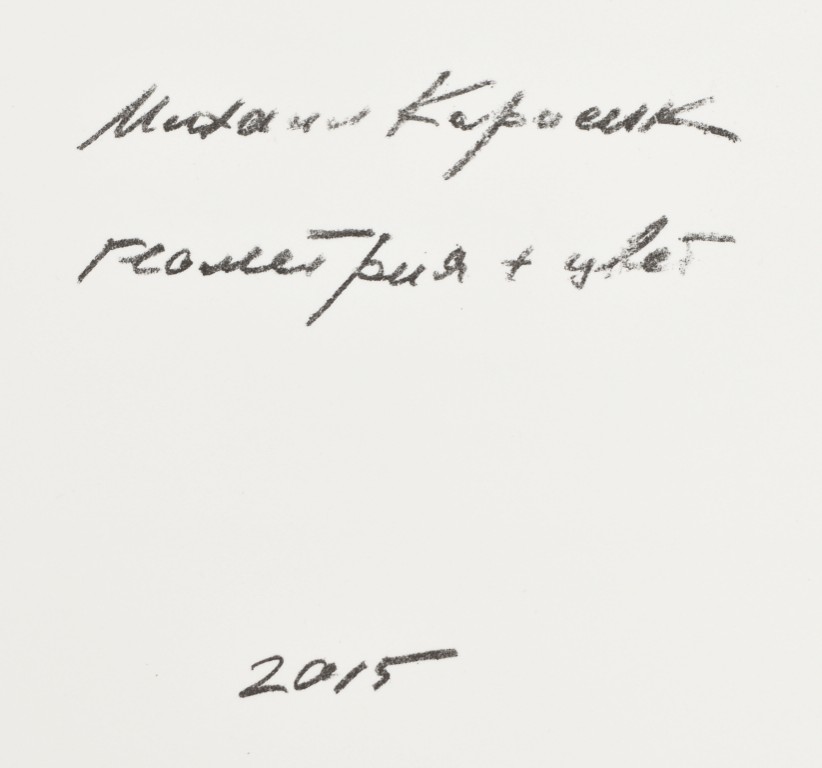 Михаил Карасик
геометрия + цвет
2015